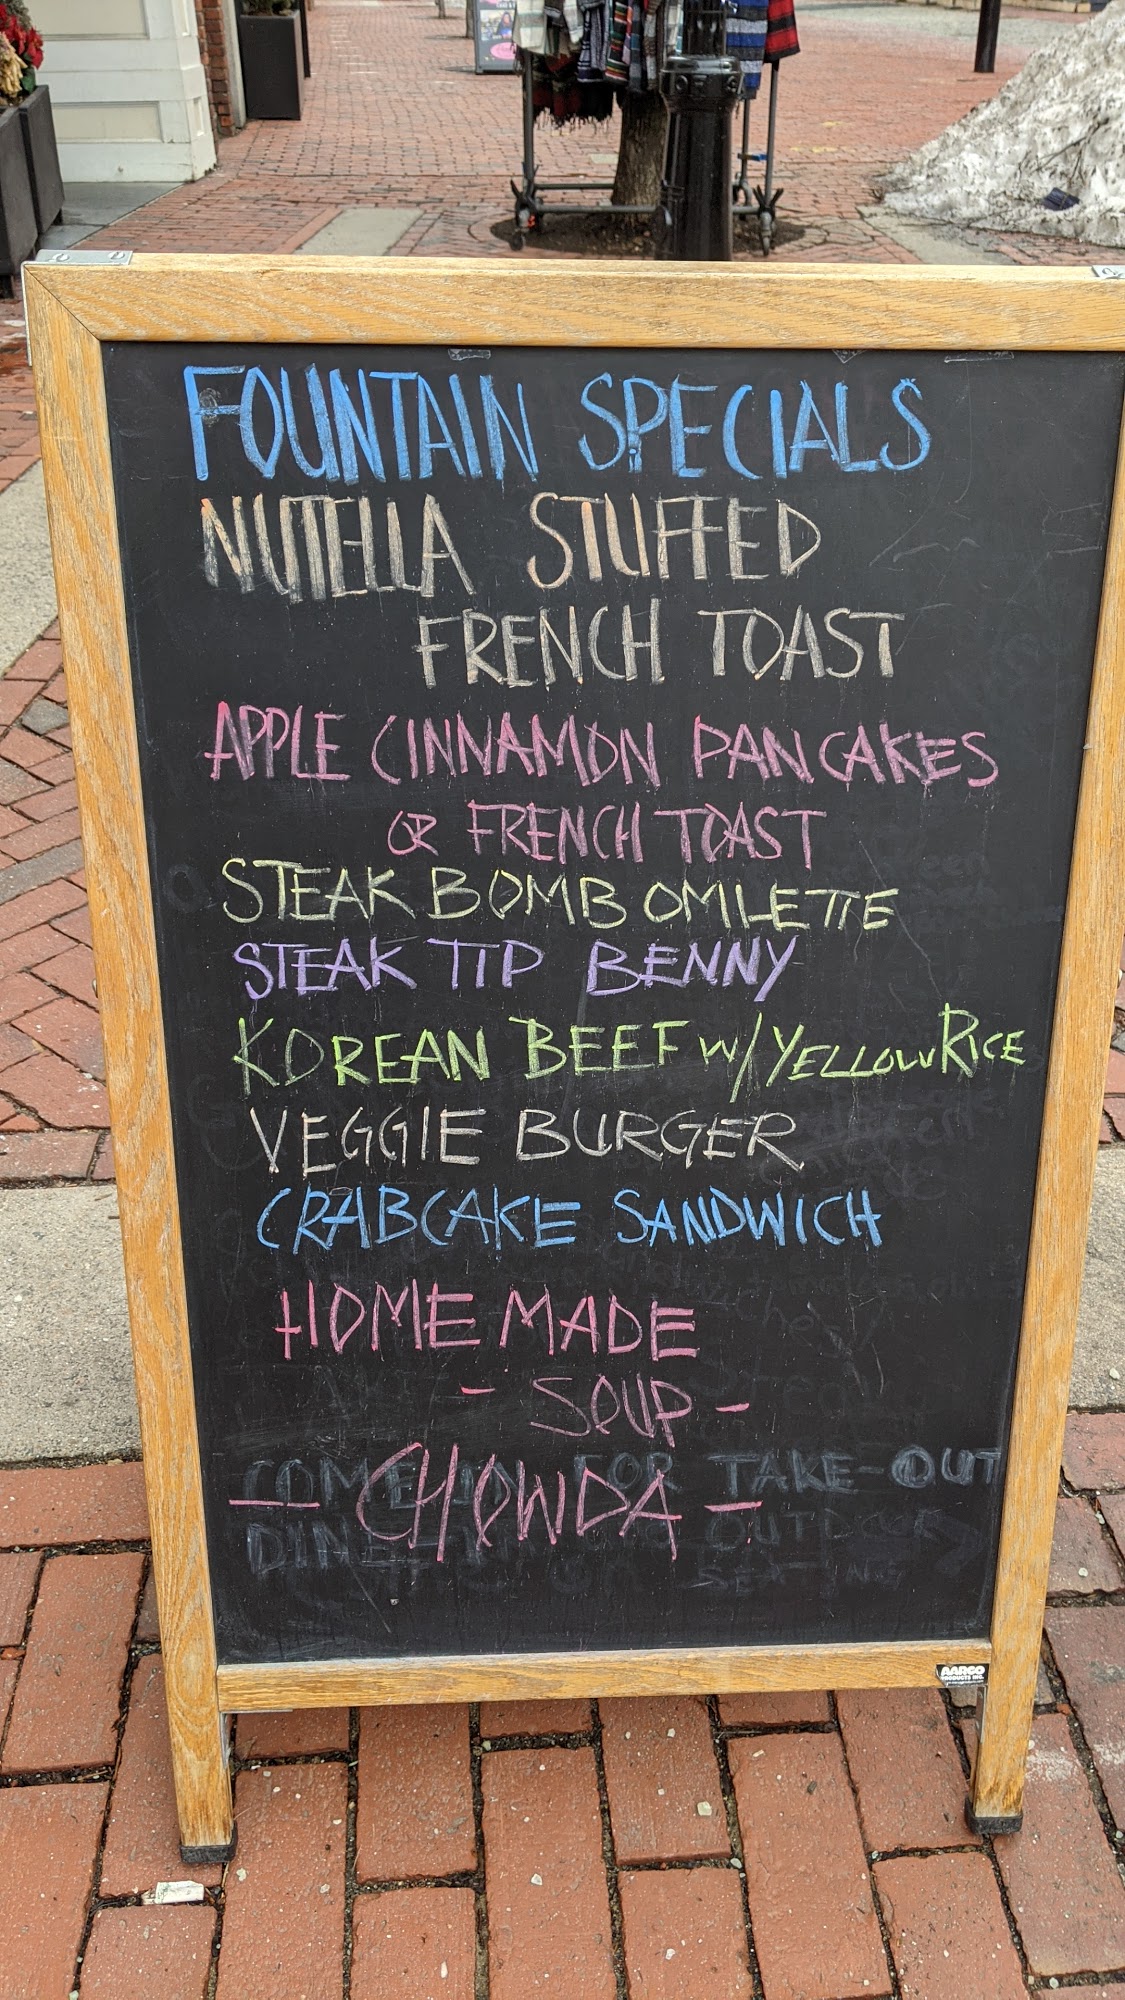 FOUNTAIN SPECIALS
NUTELLA STUFFED
FRENCH TOAST
APPLE CINNAMON PANCAKES
OR FRENCH TOAST
STEAK BOMB OMLETTE
STEAK TIP BENNY
KOREAN BEEF W/YELLOW RICE
VEGGIE BURGER
CRABCAKE SANDWICH
HOMEMADE
- SOUP -
- CHOWDA -
COME IN FOR TAKE-OUT
DINE IN OUTDOOR
SEATING
AARCO
PRODUCTS INC.